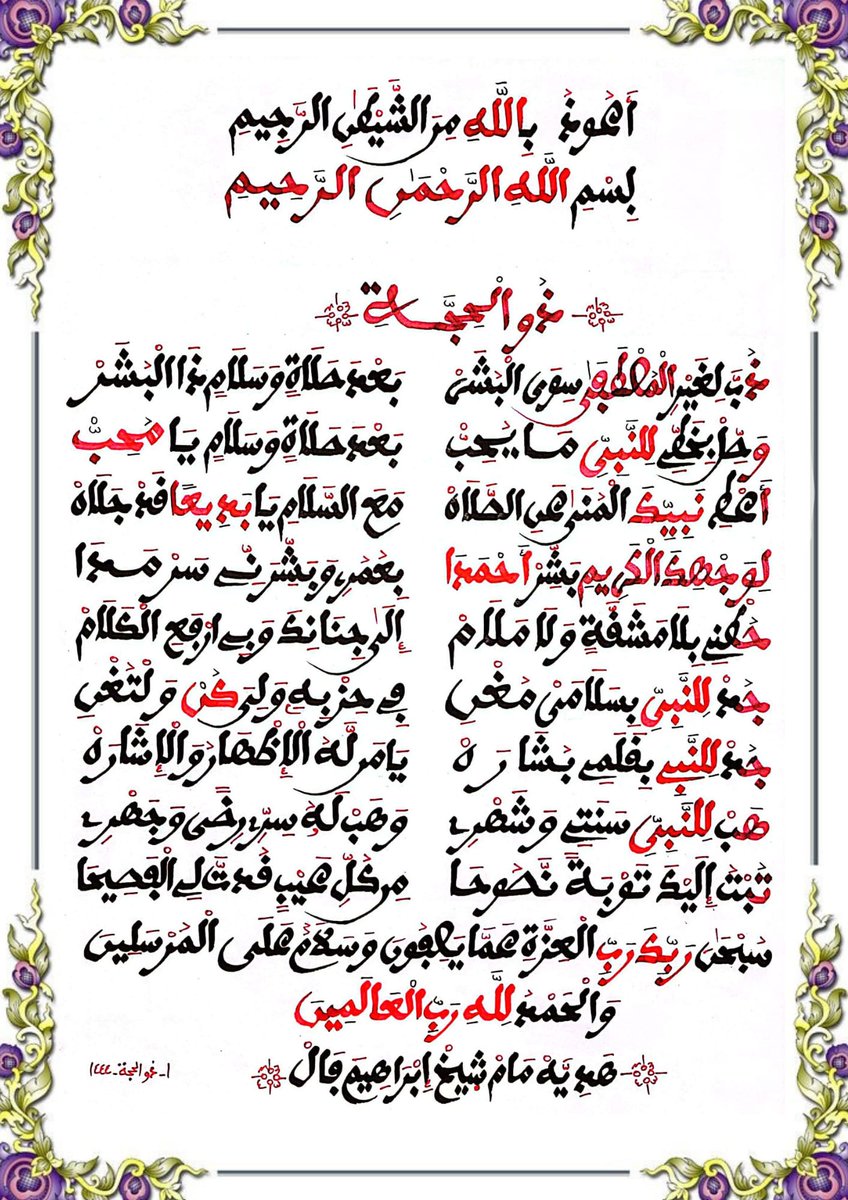 أَعُوذُ بِاللَّهِ مِنَ الشَّيْطَنِ الرَّجِيمِ
بِسْمِ اللَّهِ الرَّحْمَنِ الرَّحِيمِ
ذُو الْحِجَّةِ
ذُبَّ لِغَيْرِ الْمُصْطَفَى سِوَى الْبَشَرْ بَعْدَ صَلَاةٍ وَسَلَامٍ ذَا الْبَشَرْ
وَصِّلْ بِخَطِّي لِلنَّبِيِّ مَا يُحِبّْ بَعْدَ صَلَاةٍ وَسَلَامٍ يَا مُحِبّْ
أَعْطِ نَبِيَّكَ الْمُنَى عَنِ الصَّلَاهْ مَعَ السَّلَامِ يَا بَدِيعًا قَدْ جَلَاهْ
لِوَجْهِكَ الْكَرِيمِ بَشِّرْ أَحْمَدَا بِعُمُرِي وَبَشِّرَنِّي سَرْمَدَا
حُطْنِي بِلَا مَشَقَّةٍ وَلَا مَلَامْ إِلَى جِنَانِكَ وَبِي ارْفَعِ الْكَلَامْ
جُدْ لِلنَّبِيِّ بِسَلَامَيْ مُغْنِ فِي حِزْبِهِ وَلِيَ كُنْ وَلْتُغْنِ
جُدْ لِلنَّبِي بِقَلَمِي بِشَارَهْ يَا مَنْ لَهُ الْإِظْهَارُ وَالْإِشَارَهْ
هَبْ لِلنَّبِيِّ سَنَتِي وَشَهْرِي وَهَبْ لَهُ سِرِّي رِضًى وَجَهْرِي
تُبْتُ إِلَيْكَ تَوْبَةً نَصُوحَا مِنْ كُلِّ عَيْبٍ قُدْتَ لِي الْفَصِيحَا
سُبْحَنَ رَبِّكَ رَبِّ الْعِزَّةِ عَمَّا يَصِفُونَ وَسَلَامٌ عَلَى الْمُرْسَلِينَ
وَالْحَمْدُ لِلَّهِ رَبِّ الْعَالَمِينَ
هَدِيَّةْ مَامْ شِيخْ إِبْرَاهِيمَ فَالْ
١- ذو الحجة - ١٤٤٤